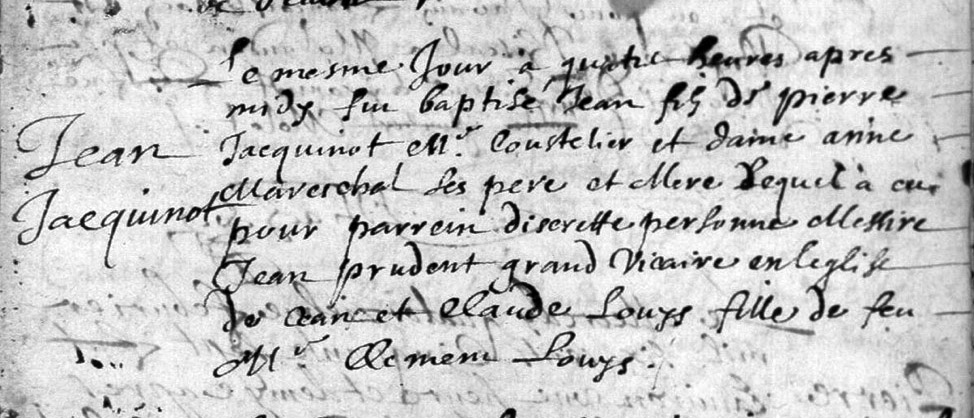 Jean
Jacquinot
Le mesme Jour à quatre heures apres
midy fut baptisé Jean filz de pierre
Jacquinot Mr. Coustelier et dame anne
Mareschal ses pere et Mere Lequel à eu
pour parrein discrette personne Messire
Jean prudent grand vicaire en leglise
de ceans et Claude Louys fille de feu
Mr Clement Louys.